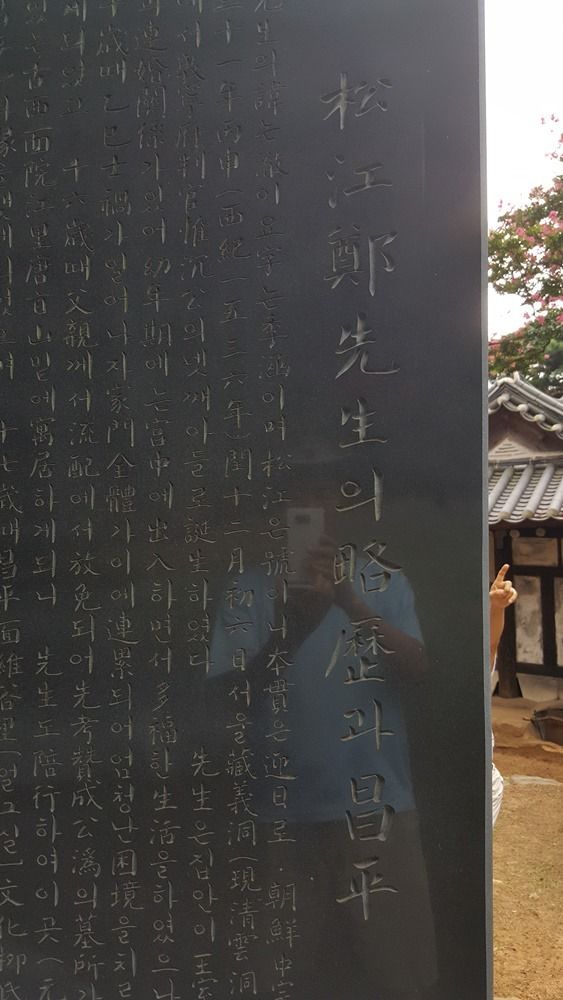 松江鄭先生의略歷과昌平
先生의諱는澈이요字는季涵이며松江은號이니本貫은迎日로.朝鮮中宗
三十一年丙申(西紀一五三六年)閏十二月初六日서울藏義洞(現淸雲洞
에서敦寧府判官惟沉公의넷째아들로誕生하였다 先生은집안이王室
과連婚關係가있어幼年期에는宮中에出入하면서多福한生活을하였으나
歲때乙巳士禍가일어나자家門全體가이에連累되어엄청난困境을치르
게되었고 十六歲때父親께서流配에서放免되어先考贊成公潙의墓所가
있는古西面院江里唐旨山밑에寓居하게되니 先生도陪行하여이곳(元
十七歲때昌平面維谷里(얼그실)文化柳氏